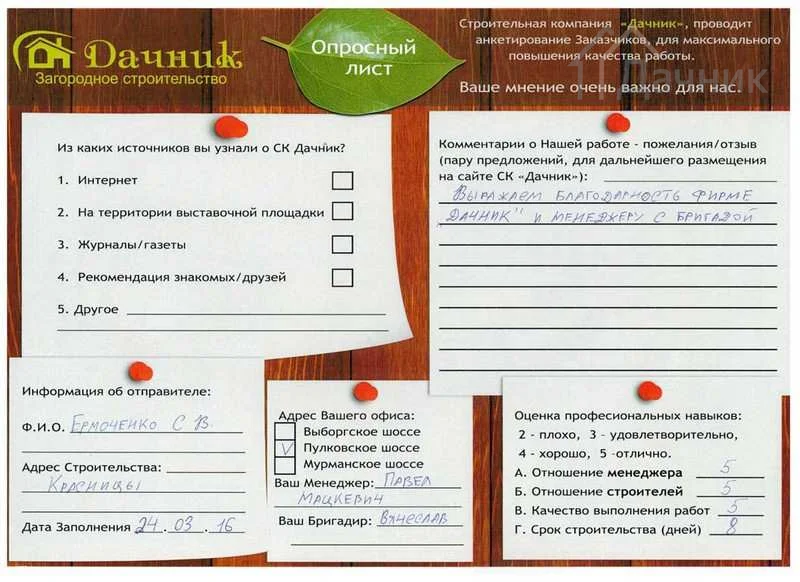 Дачник
Загородное строительство
Опросный
лист
Строительная компания «Дачник», проводит
анкетирование Заказчиков, для максимального
повышения качества работы.
Ваше мнение очень важно для нас.
Дачник
Из каких источников вы узнали о СК Дачник?
1. Интернет
2. На территории выставочной площадки
3. Журналы/газеты
4. Рекомендация знакомых/друзей
5. Другое
Комментарии о Нашей работе - пожелания/отзыв
(пару предложений, для дальнейшего размещения
на сайте СК «Дачник»):
Выражаем благодарность фирме
„Дачник" и менеджеру с бригадой
Информация об отправителе:
Ф.И.О. Ермоченко С В.
Адрес Строительства:
Красницы
Дата Заполнения 24.03.16
Адрес Вашего офиса:
Выборгское шоссе
V Пулковское шоссе
Мурманское шоссе
Ваш Менеджер: Павел
Мацкевич
Ваш Бригадир: Вячеслав
Оценка профессиональных навыков:
2 - плохо, 3 - удовлетворительно,
4 - хорошо, 5 -отлично.
А. Отношение менеджера 5
Б. Отношение строителей 5
В. Качество выполнения работ 5
Г. Срок строительства (дней) 8